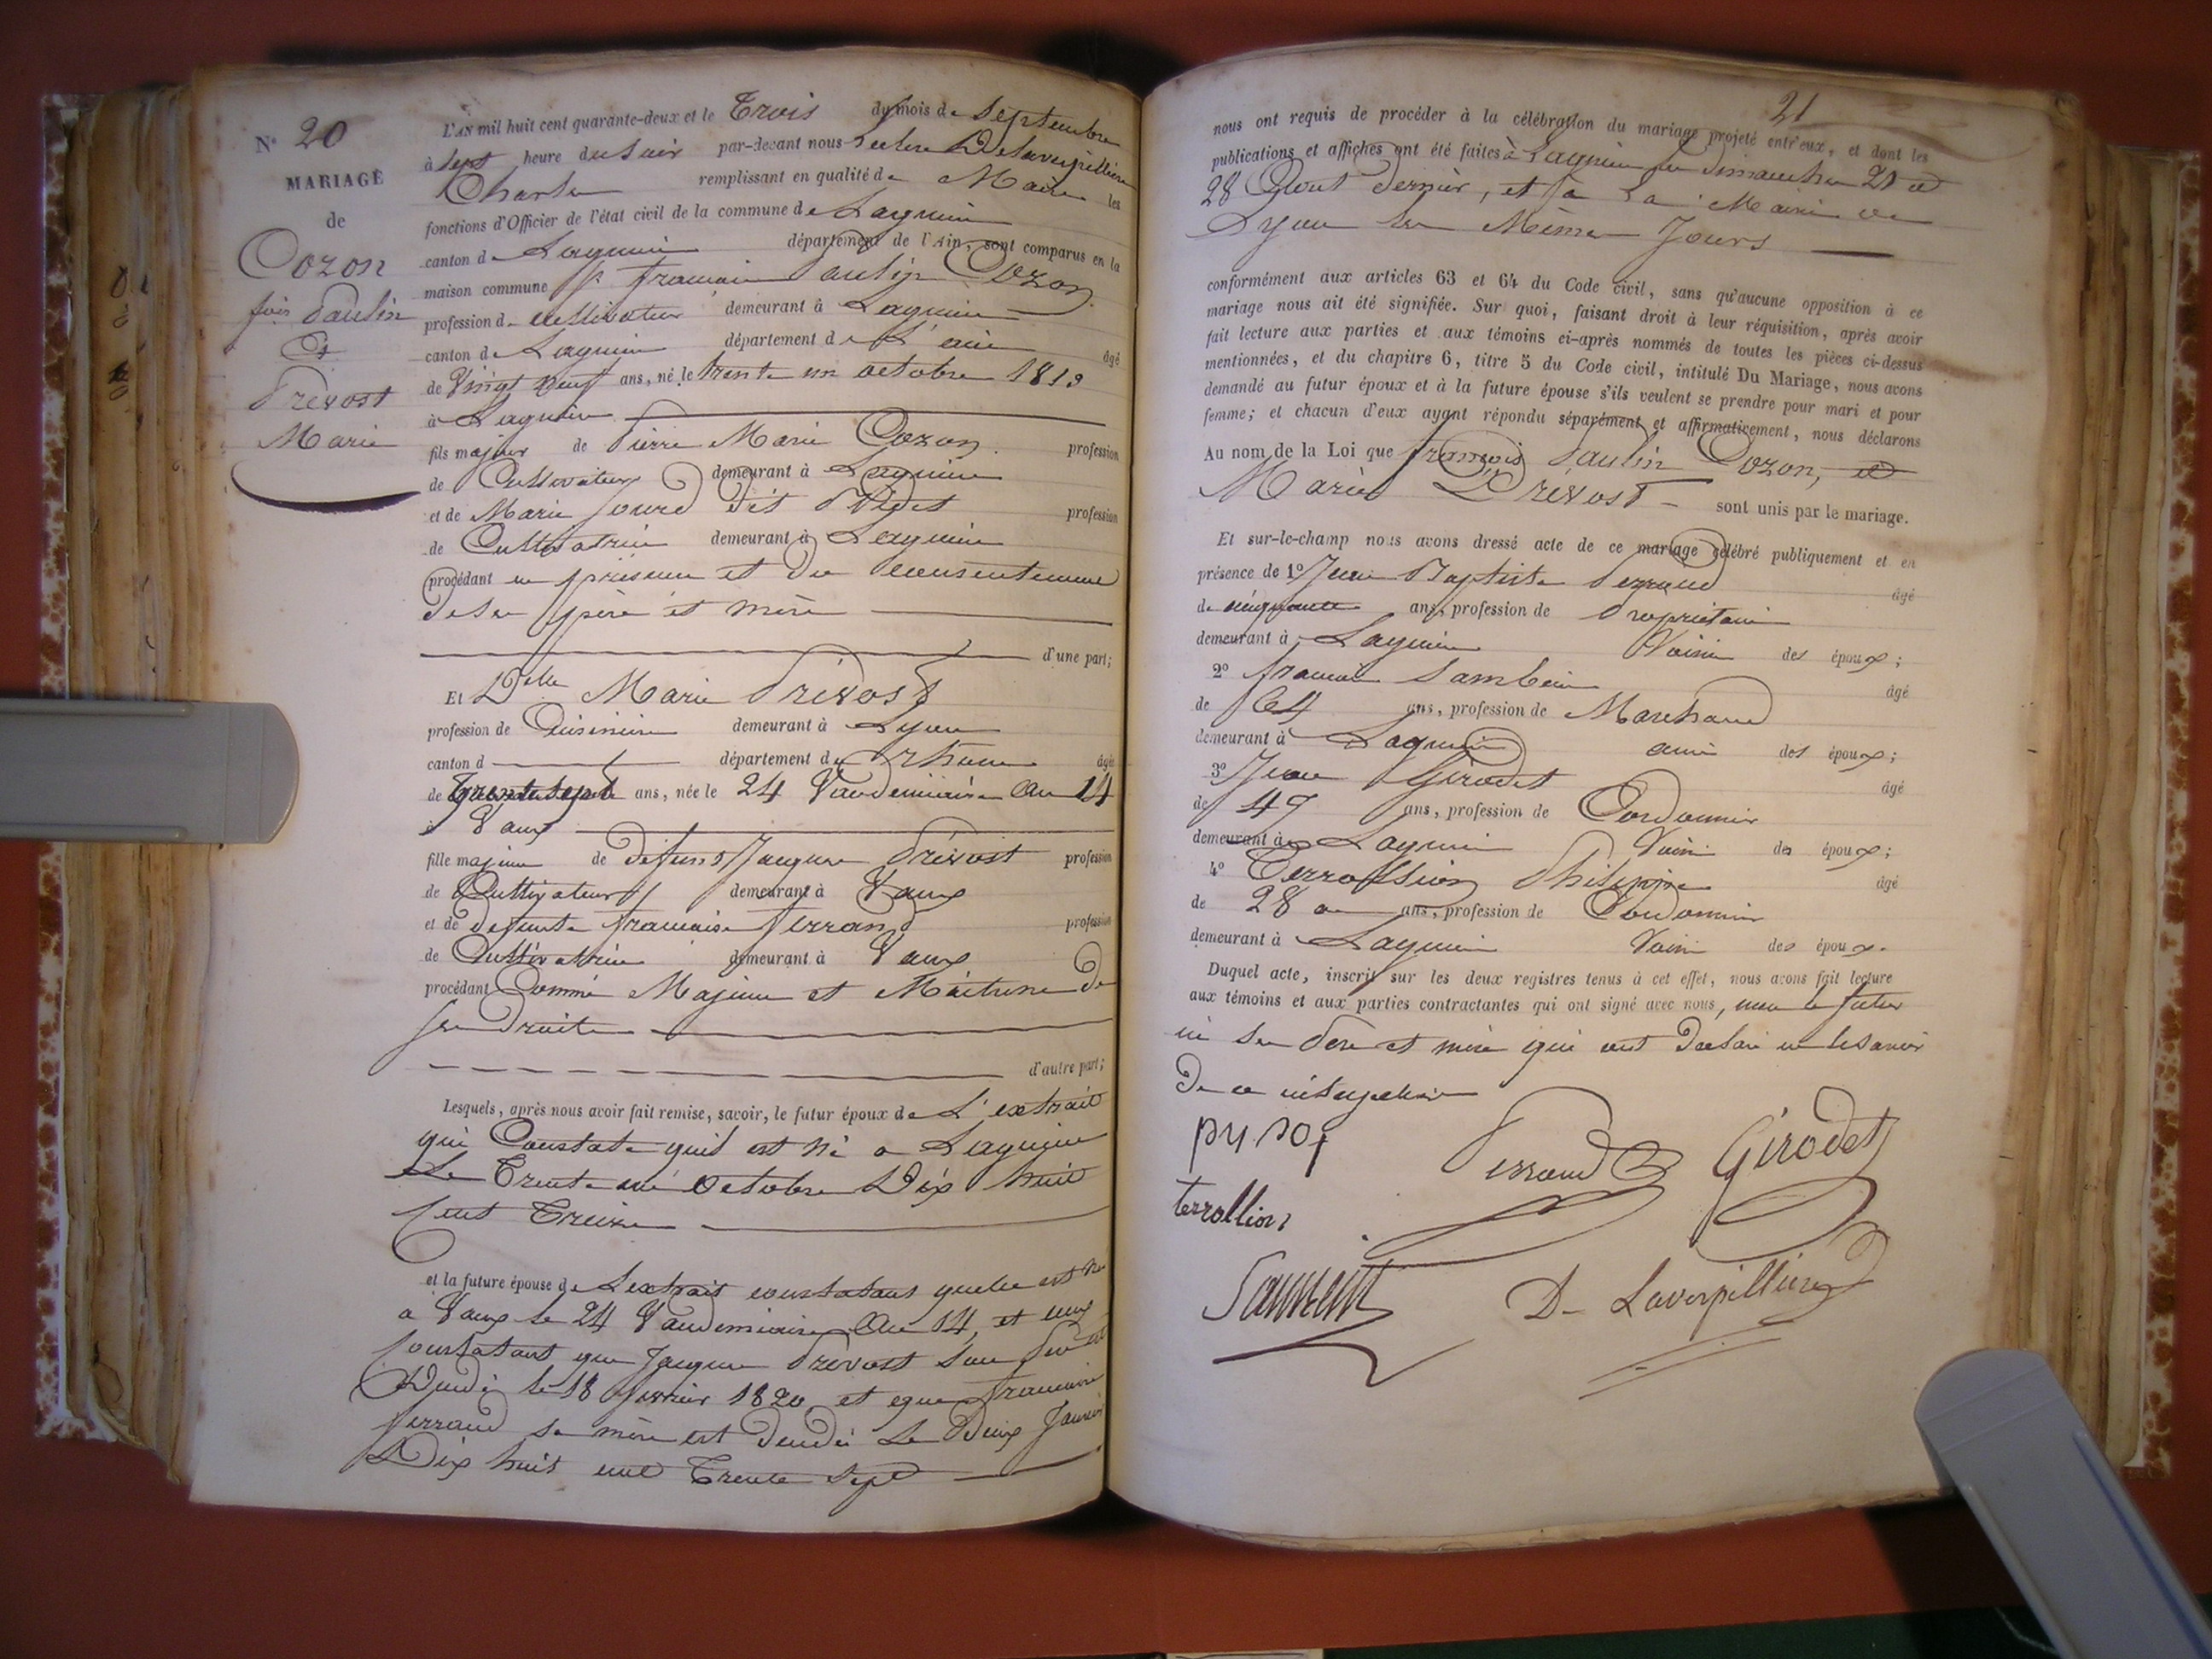 N° 20
MARIAGE
de
Cozon
fois Paulin
Et
Prevost
Marie
L'AN mil huit cent quarante-deux et le Trois du mois de Septembre
à sept heure du soir par-devant nous Delaverpilliere
Charles remplissant en qualité de Maire les
fonctions d'Officier de l'état civil de la commune de Lagnieu
canton de Lagnieu département de l'Ain, sont comparus en la
maison commune Sr francois Paulin Cozon
profession de Cultivateur demeurant à Lagnieu
canton de Lagnieu département de L'ain âgé
de Vingt neuf ans, né le trente un octobre 1813
à Lagnieu
fils majeur de Pierre Marie Cozon profession
de Cultivateur demeurant à Lagnieu
et de Marie Jourd dit profession
de Cultivatrice demeurant à Lagnieu
procédant en presence et du consentement
de ses père et mère
d'une part;
Et Delle Marie Prévost
profession de Cuisinière demeurant à Lyon
canton d département du Rhone âgée
de Trente sept ans, née le 24 Vandemiaire An 14
à Vaux
fille majeure de defunt Jacques Prévost profession
de Cultivateur demeurant à Vaux
et de defunte francoise ferrand profession
de Cultivatrice demeurant à Vaux
procédant Comme Majeure et Maitresse de
ses Droits
d'autre part;
Lesquels, après nous avoir fait remise, savoir, le futur époux de L'extrait
qui Constate quil est né a Lagnieu
Le Trente un Octobre Dix huit
Cent Treize
et la future épouse de L'extrait constatant quelle est né
a Vaux le 24 Vandemiaire An 14, et
Constatant que Jacques Prévost son Père est
le 18 fevrier 1820, et que francoise
ferrand sa mère est Le Deux Janvier
Dix huit cent Trente Sept
21
nous ont requis de procéder à la célébration du mariage projeté entr'eux, et dont les
publications et affiches ont été faites à Lagnieu les Dimanches 21 et
28 Aout dernier, et a La Mairie de
Lyon les Mêmes Jours
conformément aux articles 63 et 64 du Code civil, sans qu'aucune opposition à ce
mariage nous ait été signifiée. Sur quoi, faisant droit à leur réquisition, après avoir
fait lecture aux parties et aux témoins ci-après nommés de toutes les pièces ci-dessus
mentionnées, et du chapitre 6, titre 5 du Code civil, intitulé Du Mariage, nous avons
demandé au futur époux et à la future épouse s'ils veulent se prendre pour mari et pour
femme; et chacun d'eux ayant répondu séparément et affirmativement, nous déclarons
Au nom de la Loi que françois Paulin Cozon, et
Marie Prevost sont unis par le mariage.
Et sur-le-champ nous avons dressé acte de ce mariage célébré publiquement et en
présence de 1° Jean Baptiste Perraud âgé
de cinquante ans, profession de Propriétaire
demeurant à Lagnieu Voisin des époux;
2° francois âgé
de 64 ans, profession de Marchand
demeurant à Lagnieu ami des époux;
3° Jean Girodet âgé
de 47 ans, profession de Cordonnier
demeurant à Lagnieu Voisin des époux;
4° Terrollion Philippe âgé
de 28 ans, profession de Cordonnier
demeurant à Lagnieu Voisin des époux.
Duquel acte, inscrit sur les deux registres tenus à cet effet, nous avons fait lecture
aux témoins et aux parties contractantes qui ont signé avec nous, non le futur
ni ses Père et mère qui ont Declaré ne le savoir
De ce interpellés
Perraud Girodet
terrollion
D- Laverpillière